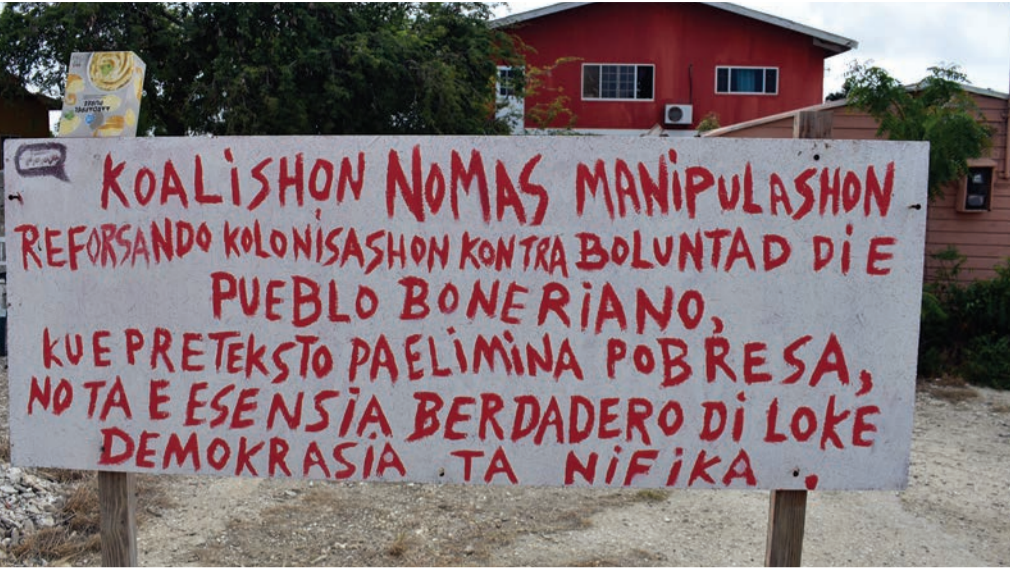 KOALiSHON NOMAS MANiPULASHON
REFORSANDO KOLONiSASHON KONTRA BOLUNTAD Di E
PUEBLO BONERiANO,
KU E PRETEKSTO PA ELiMiNA POBRESA,
NO TA E ESENSiA BERDADERO Di LOKE
DEMOKRASiA TA NiFiKA.
AARDAPPEL
PUREE